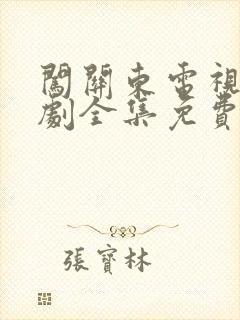 闖關東電視
劇全集免費
張寶林